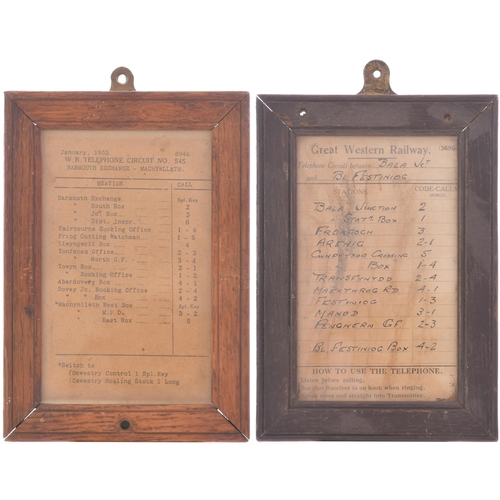 January, 1963
W.R. TELEPHONE CIRCUIT NO. 545
BARMOUTH EXCHANGE - MACHYNLLETH
STATION CALL
Barmouth Exchange Spl. Key
" South Box 2
" Jct Box 3
" Stat. Inspr. 6
Fairbourne Booking Office 1 - 4
Friog Cutting Watchman 1 - 5
Llwyngwril Box 4
Tonfanau Office 2 - 3
" North G.F. 3 - 4
Towyn Box 3 - 1
" Booking Office 3 - 2
Aberdovey Box 4 - 1
Dovey Jc. Booking Office 2 - 4
" Box 4 - 2
*Machynlleth West Box Spl. Key
" M.P.D. 3 - 2
" East Box 5
*Switch to
(Oswestry Control 1 Spl. Key
(Oswestry Rolling Stock 1 Long
Great Western Railway.
Telephone Circuit between BALA JCT
and BL FESTINIOG
STATIONS CODE-CALLS
BALA JUNCTION 2
" STATN BOX 1
FRONGOCH 3
ARENIG 2-1
CWMPRYSOR CROSSING 5
BOX 1-4
TRAWSFYNYDD 2-2
MAENTWROG RD 4-1
FESTINIOG 1-3
MANOD 3-1
PENGWERN G.F. 2-3
BL FESTINIOG BOX 4-2
HOW TO USE THE TELEPHONE.
Listen before calling.
See that Receiver is on hook when ringing.
Speak slow and straight into Transmitter.